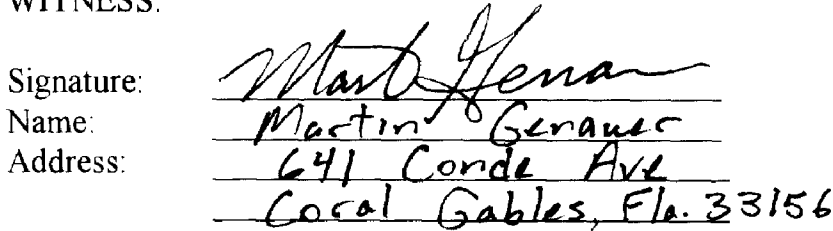 WITNESS:
Signature: Mart Genau
Name: Martin Genauer
Address: 641 Conde Ave
Coral Gables, Fla. 33156